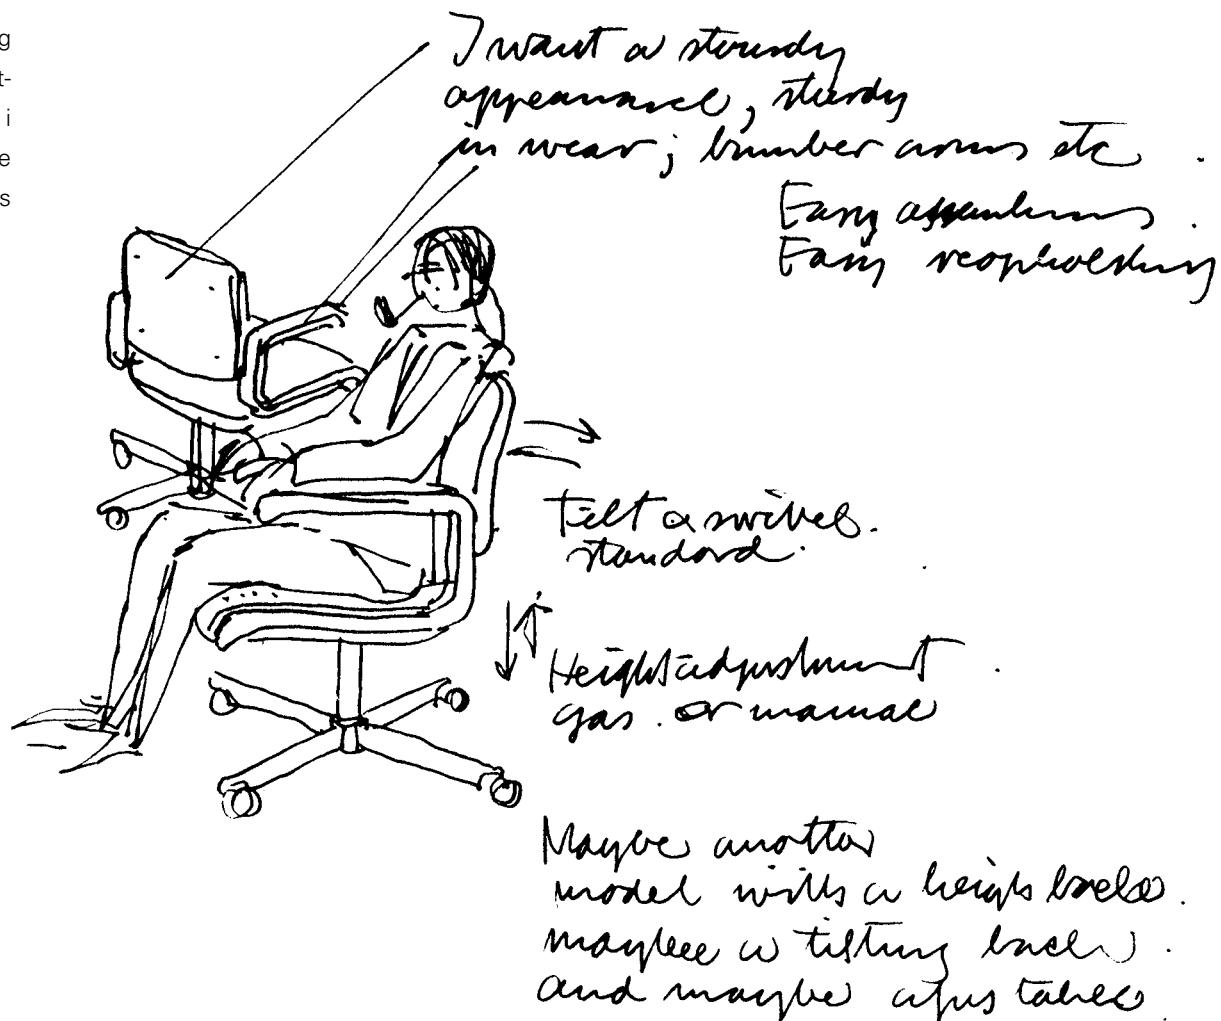 g
t-
i
e
s
I want a sturdy
appearance, sturdy
in wear; bumber arms etc.
Easy
Easy reopholstery
Tilt & swivel.
standard.
Height adjustment
gas. or manual
Maybe another
model with a heigh back.
maybee a tilting back.
and maybe